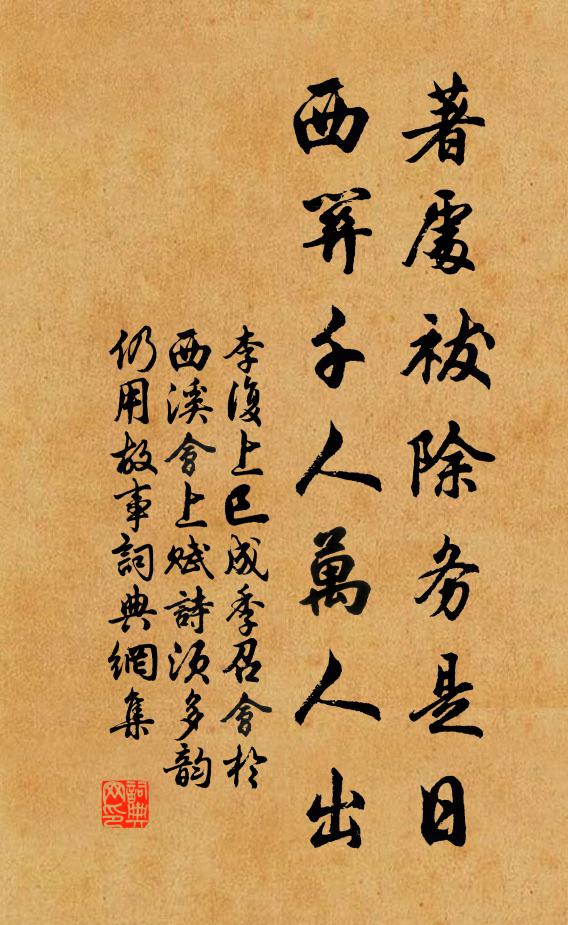 著處祓除务是日
西千人萬人出
李復上巳成季召會於
西溪會上賦詩須多韵
仍用故事詞典網集
詞典
网印